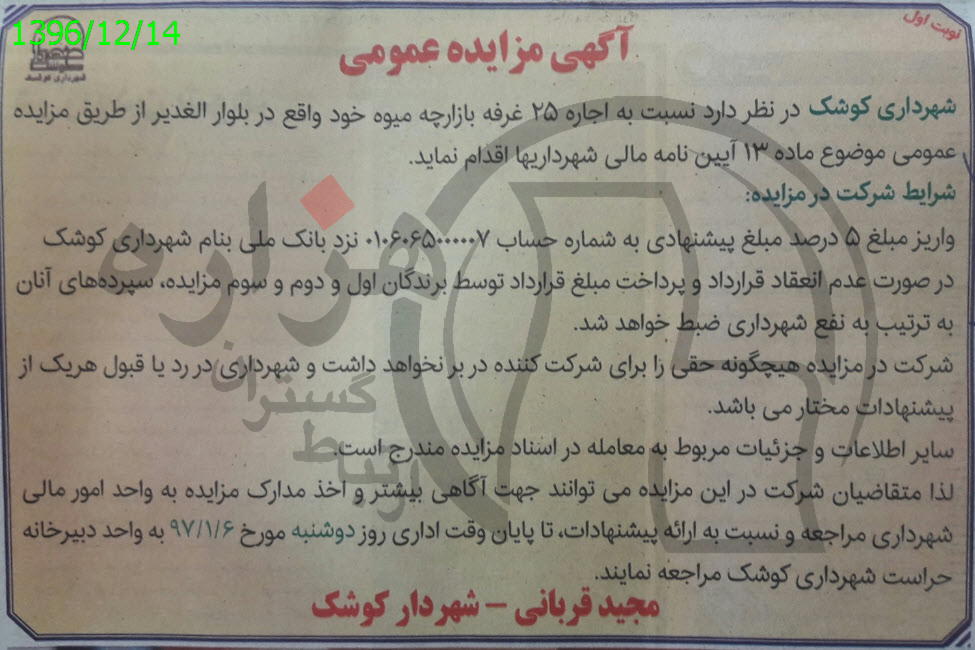 1396/12/14
نوبت اول
شهرداری کوشک
آگهی مزایده عمومی
شهرداری کوشک در نظر دارد نسبت به اجاره ۲۵ غرفه بازارچه میوه خود واقع در بلوار الغدیر از طریق مزایده
عمومی موضوع ماده ۱۳ آیین نامه مالی شهرداریها اقدام نماید.
شرایط شرکت در مزایده:
واریز مبلغ ۵ درصد مبلغ پیشنهادی به شماره حساب ۰۱۰۶۰۶۵۰۰۰۰۰۷ نزد بانک ملی بنام شهرداری کوشک
در صورت عدم انعقاد قرارداد و پرداخت مبلغ قرارداد توسط برندگان اول و دوم و سوم مزایده، سپرده‌های آنان
به ترتیب به نفع شهرداری ضبط خواهد شد.
شرکت در مزایده هیچگونه حقی را برای شرکت کننده در بر نخواهد داشت و شهرداری در رد یا قبول هریک از
پیشنهادات مختار می باشد.
سایر اطلاعات و جزئیات مربوط به معامله در اسناد مزایده مندرج است.
لذا متقاضیان شرکت در این مزایده می توانند جهت آگاهی بیشتر و اخذ مدارک مزایده به واحد امور مالی
شهرداری مراجعه و نسبت به ارائه پیشنهادات، تا پایان وقت اداری روز دوشنبه مورخ ۹۷/۱/۶ به واحد دبیرخانه
حراست شهرداری کوشک مراجعه نمایند.
مجید قربانی – شهردار کوشک
هزاره
گستران
ارتباط